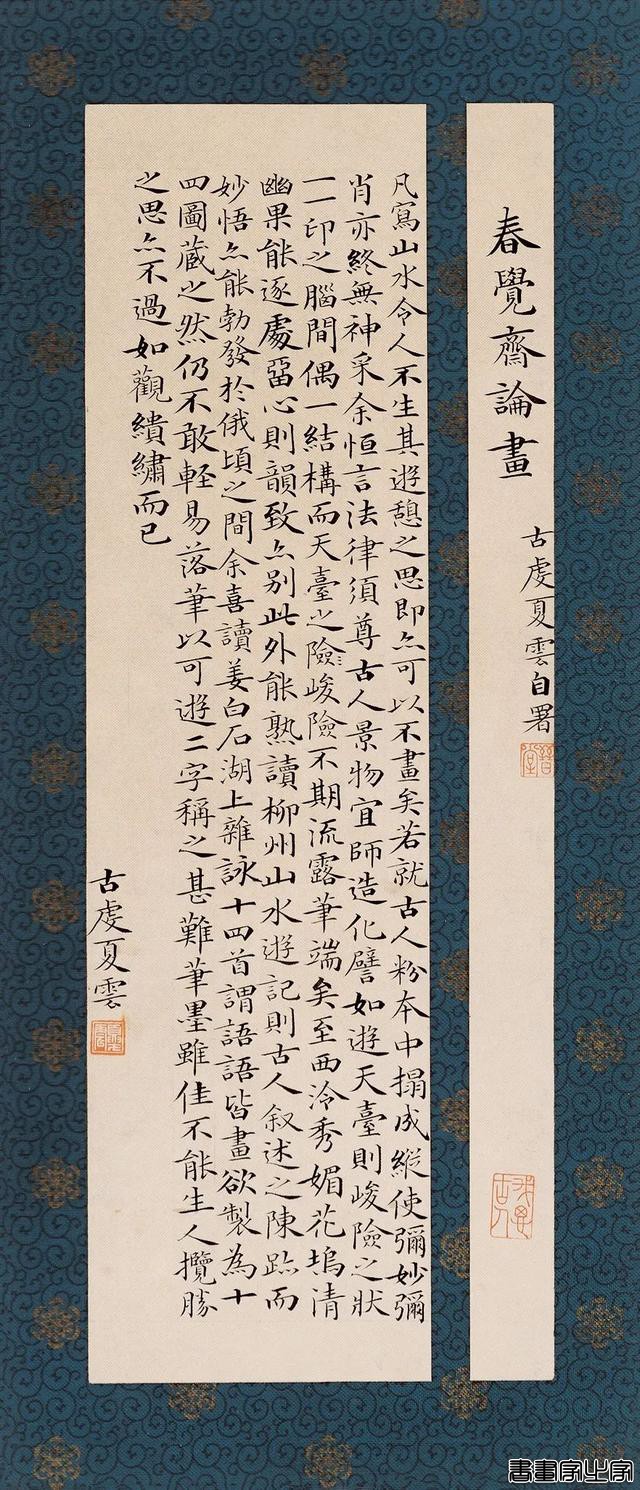 春覺齋論畫
古虔夏雲自署
凡寫山水令人不生其遊憩之思即亦可以不畫矣若就古人粉本中搨成縱使彌妙彌
肖亦終無神采余恒言法律須尊古人景物宜師造化譬如遊天臺則峻險之狀
一一印之腦間偶一結構而天臺之險峻險不期流露筆端矣至西泠秀媚花塢清
幽果能逐處留心則韻致亦別此外能熟讀柳州山水遊記則古人叙述之陳跡而
妙悟亦能勃發於俄頃之間余喜讀姜白石湖上雜詠十四首謂語語皆畫欲製為十
四圖藏之然仍不敢輕易落筆以可遊二字稱之甚難筆墨雖佳不能生人攬勝
之思亦不過如觀繢繡而已
古虔夏雲
書畫家止字